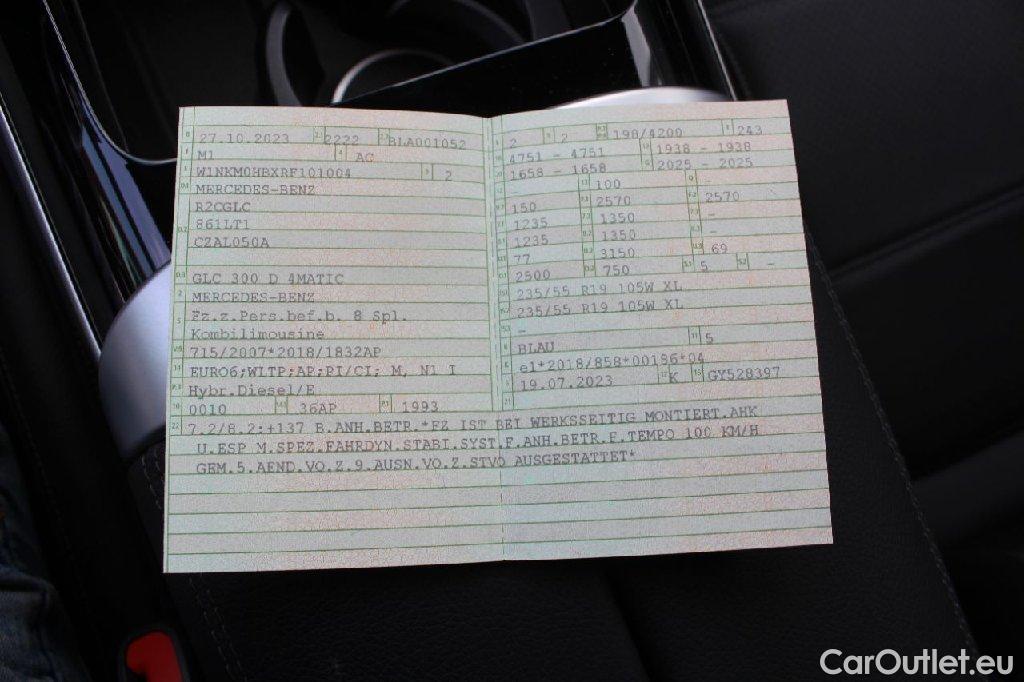 B 27.10.2023 2.1 2222 2.2 BLA001052
J M1 4 AC
E W1NKM0HBXRF101004 3 2
D.1 MERCEDES-BENZ
R2CGLC
D.2 861LT1
CZAL050A
D.3 GLC 300 D 4MATIC
2 MERCEDES-BENZ
5 Fz.z.Pers.bef.b. 8 Spl.
Kombilimousine
V.9 715/2007*2018/1832AP
14 EURO6;WLTP;AP;PI/CI; M, N1 I
P.3 Hybr.Diesel/E
10 0010 14.1 36AP P.1 1993
L 2 9 2 P.2 P.4 198/4200 T 243
18 4751 - 4751 19 1938 - 1938
20 1658 - 1658 G 2025 - 2025
12 - 13 100 Q -
V.7 150 F.1 2570 F.2 2570
7.1 1235 7.2 1350 7.3 -
8.1 1235 8.2 1350 8.3 -
U.1 77 U.2 3150 U.3 69
O.1 2500 O.2 750 S.1 5 S.2 -
15.1 235/55 R19 105W XL
15.2 235/55 R19 105W XL
15.3 -
R BLAU 11 5
K e1*2018/858*00186*04
6 19.07.2023 17 K 16 GY528397
21
22 7.2/8.2:+137 B.ANH.BETR.*FZ IST BEI WERKSSEITIG MONTIERT.AHK
U.ESP M.SPEZ.FAHRDYN.STABI.SYST.F.ANH.BETR.F.TEMPO 100 KM/H
GEM.5.AEND.VO.Z.9.AUSN.VO.Z.STVO AUSGESTATTET*
CarOutlet.eu